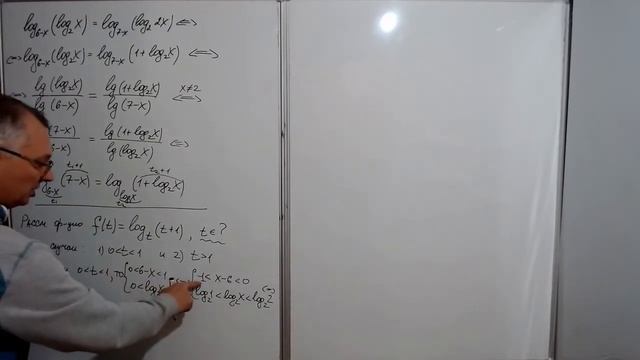 log_{6-x}(log_2 x) = log_{7-x}(log_2 2x) ⇔
⇔ log_{6-x}(log_2 x) = log_{7-x}(1+log_2 x) ⇔
⇔ lg(log_2 x)/lg(6-x) = lg(1+log_2 x)/lg(7-x) x≠2 ⇔
(7-x)/(-x) = lg(1+log_2 x)/lg(log_2 x) ⇔
log_{6-x}(7-x) = log_{log_2 x}(1+log_2 x) t_1 t_1+1 t_2 t_2+1
Рассм ф-цию f(t) = log_t(t+1), t ∈ ?
случаи: 1) 0<t<1 и 2) t>1
0<t<1, то { 0<6-x<1 { -1<x-6<0 ⇔
0<log_2 x log_2 1<log_2 x<log_2 2